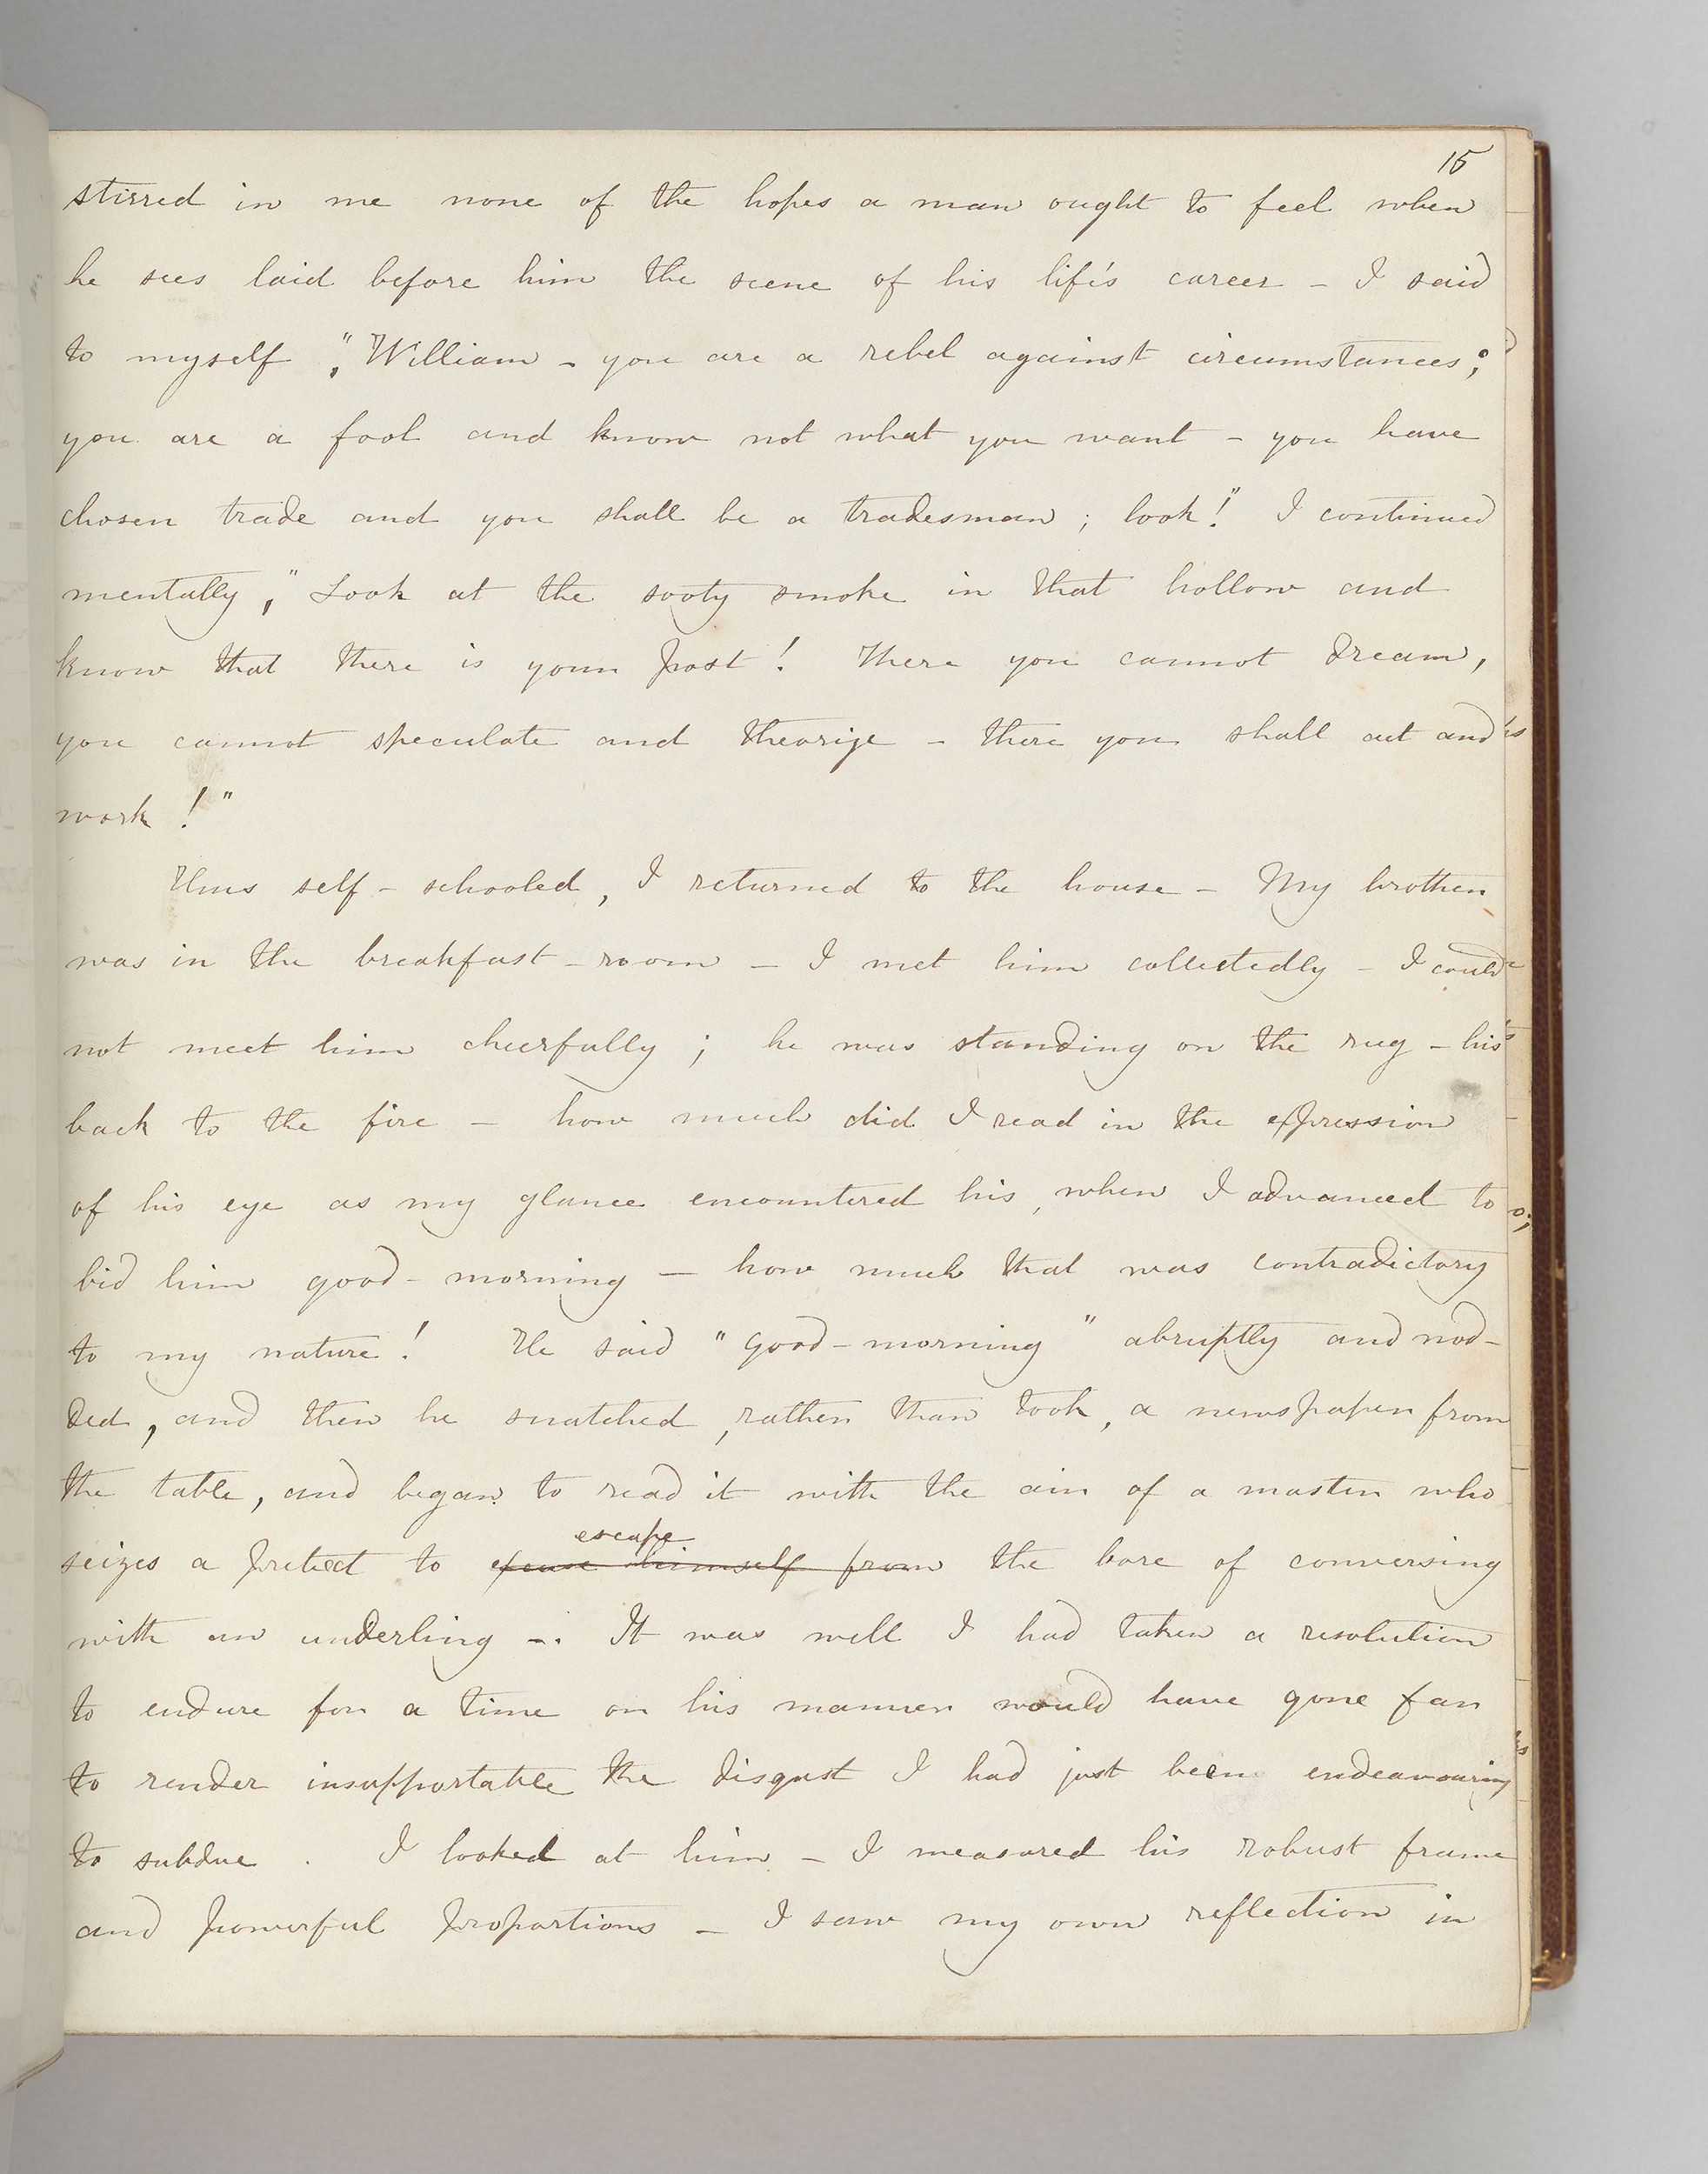 15
stirred in me none of the hopes a man ought to feel when
he sees laid before him the scene of his life's career - I said
to myself, "William - you are a rebel against circumstances;
you are a fool and know not what you want - you have
chosen trade and you shall be a tradesman; look!" I continued
mentally, "Look at the sooty smoke in that hollow and
know that there is your post! There you cannot dream,
you cannot speculate and theorize - there you shall act and
work!"
Thus self-schooled, I returned to the house - My brother
was in the breakfast-room - I met him collectedly - I could
not meet him cheerfully; he was standing on the rug - his
back to the fire - how much did I read in the expression
of his eye as my glance encountered his, when I advanced to
bid him good-morning - how much that was contradictory
to my nature! He said "Good-morning" abruptly and nod-
ded, and then he snatched, rather than took, a newspaper from
the table, and began to read it with the air of a master who
escape
seizes a pretext to excuse himself from the bore of conversing
with an underling -. It was well I had taken a resolution
to endure for a time or his manner would have gone far
to render insupportable the disgust I had just been endeavouring
to subdue. I looked at him - I measured his robust frame
and powerful proportions - I saw my own reflection in